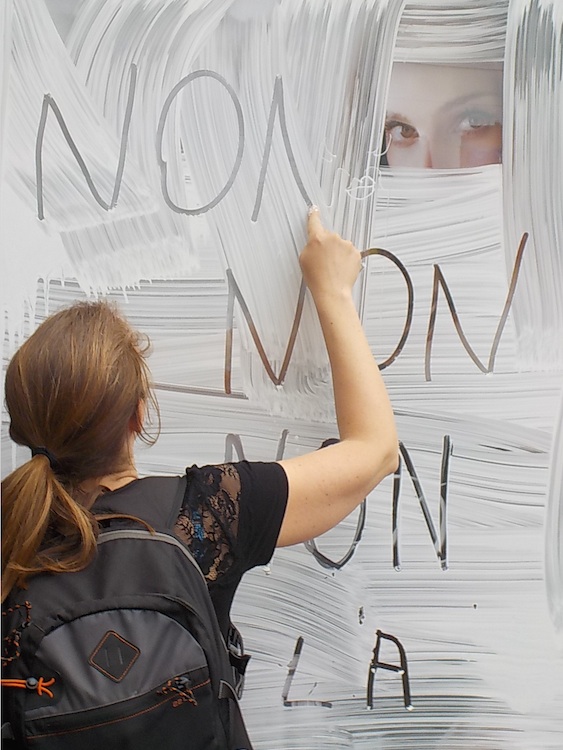 NON
NON
NON
LA